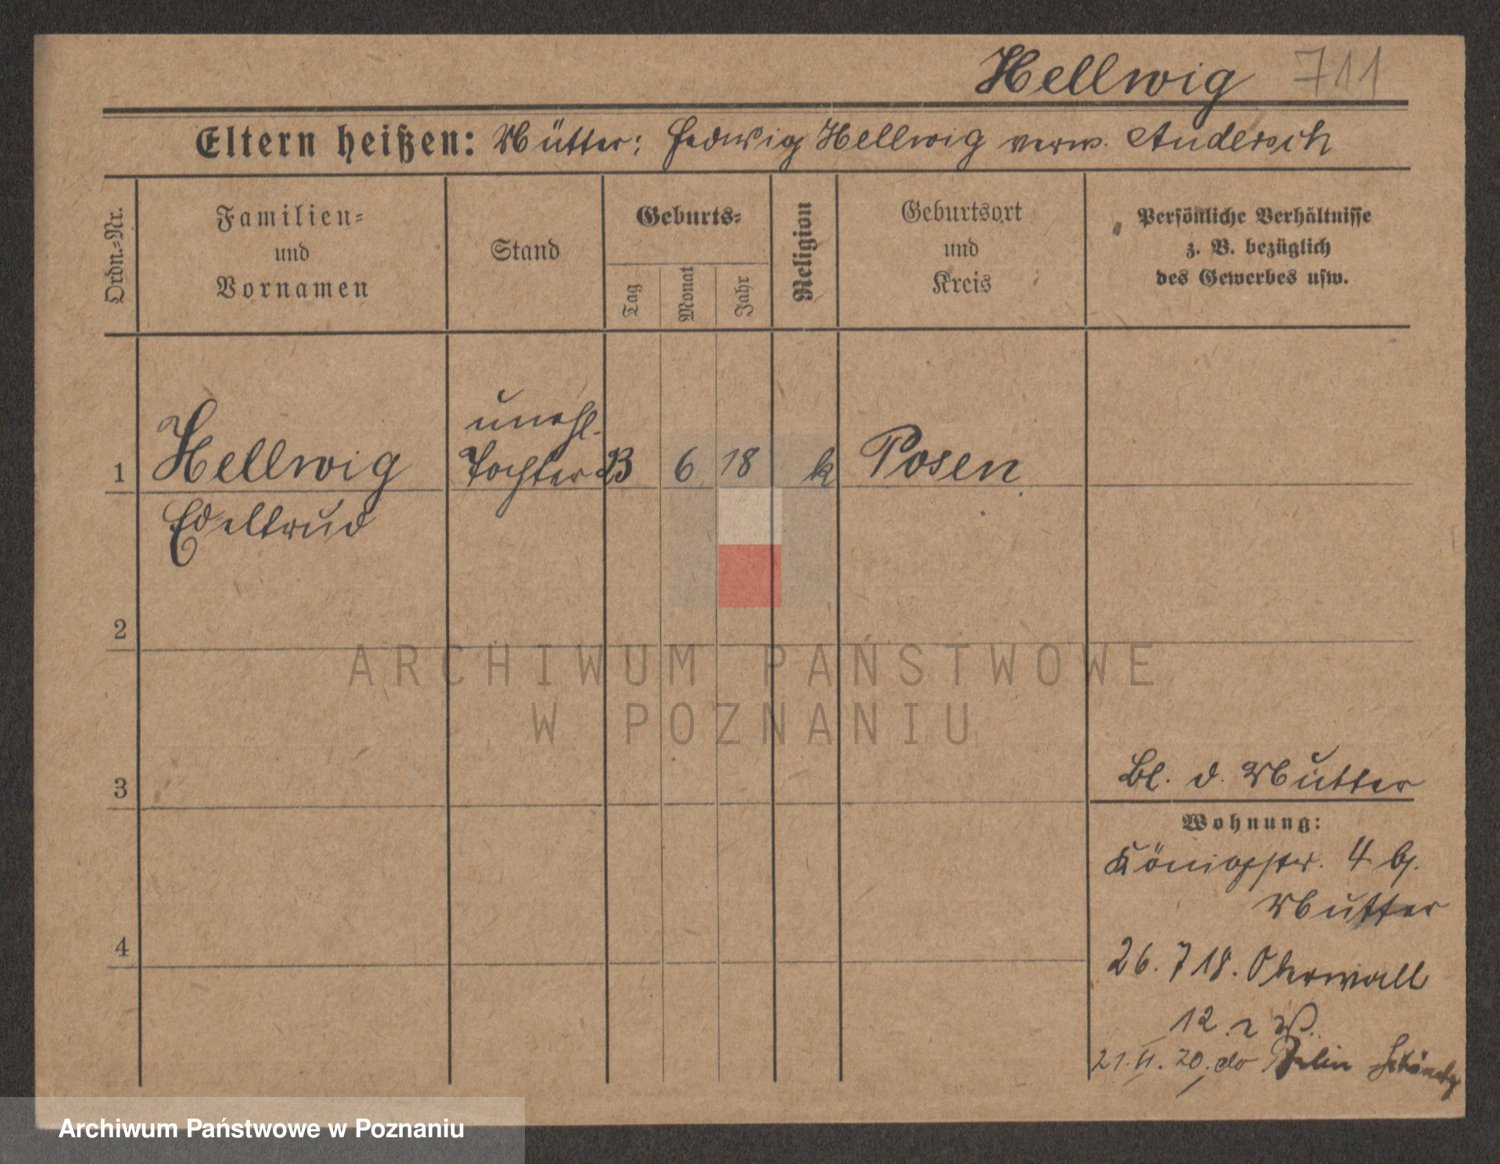 Hellwig 711
Eltern heißen: Mutter: Hedwig Hellwig verw. Andersch
Ordn.=Nr.
Familien=
und
Vornamen
Stand
Geburts=
Tag
Monat
Jahr
Religion
Geburtsort
und
Kreis
Persönliche Verhältnisse
z. B. bezüglich
des Gewerbes usw.
unehl.
1 Hellwig Tochter 23 6 18 k Posen
Edeltrud
2
ARCHIWUM PAŃSTWOWE
W POZNANIU
3
Bl. d. Mutter
Wohnung:
Königstr. 4 bj.
Mutter
4
26. 7 18.
12
21. 11. 20. do
Archiwum Państwowe w Poznaniu